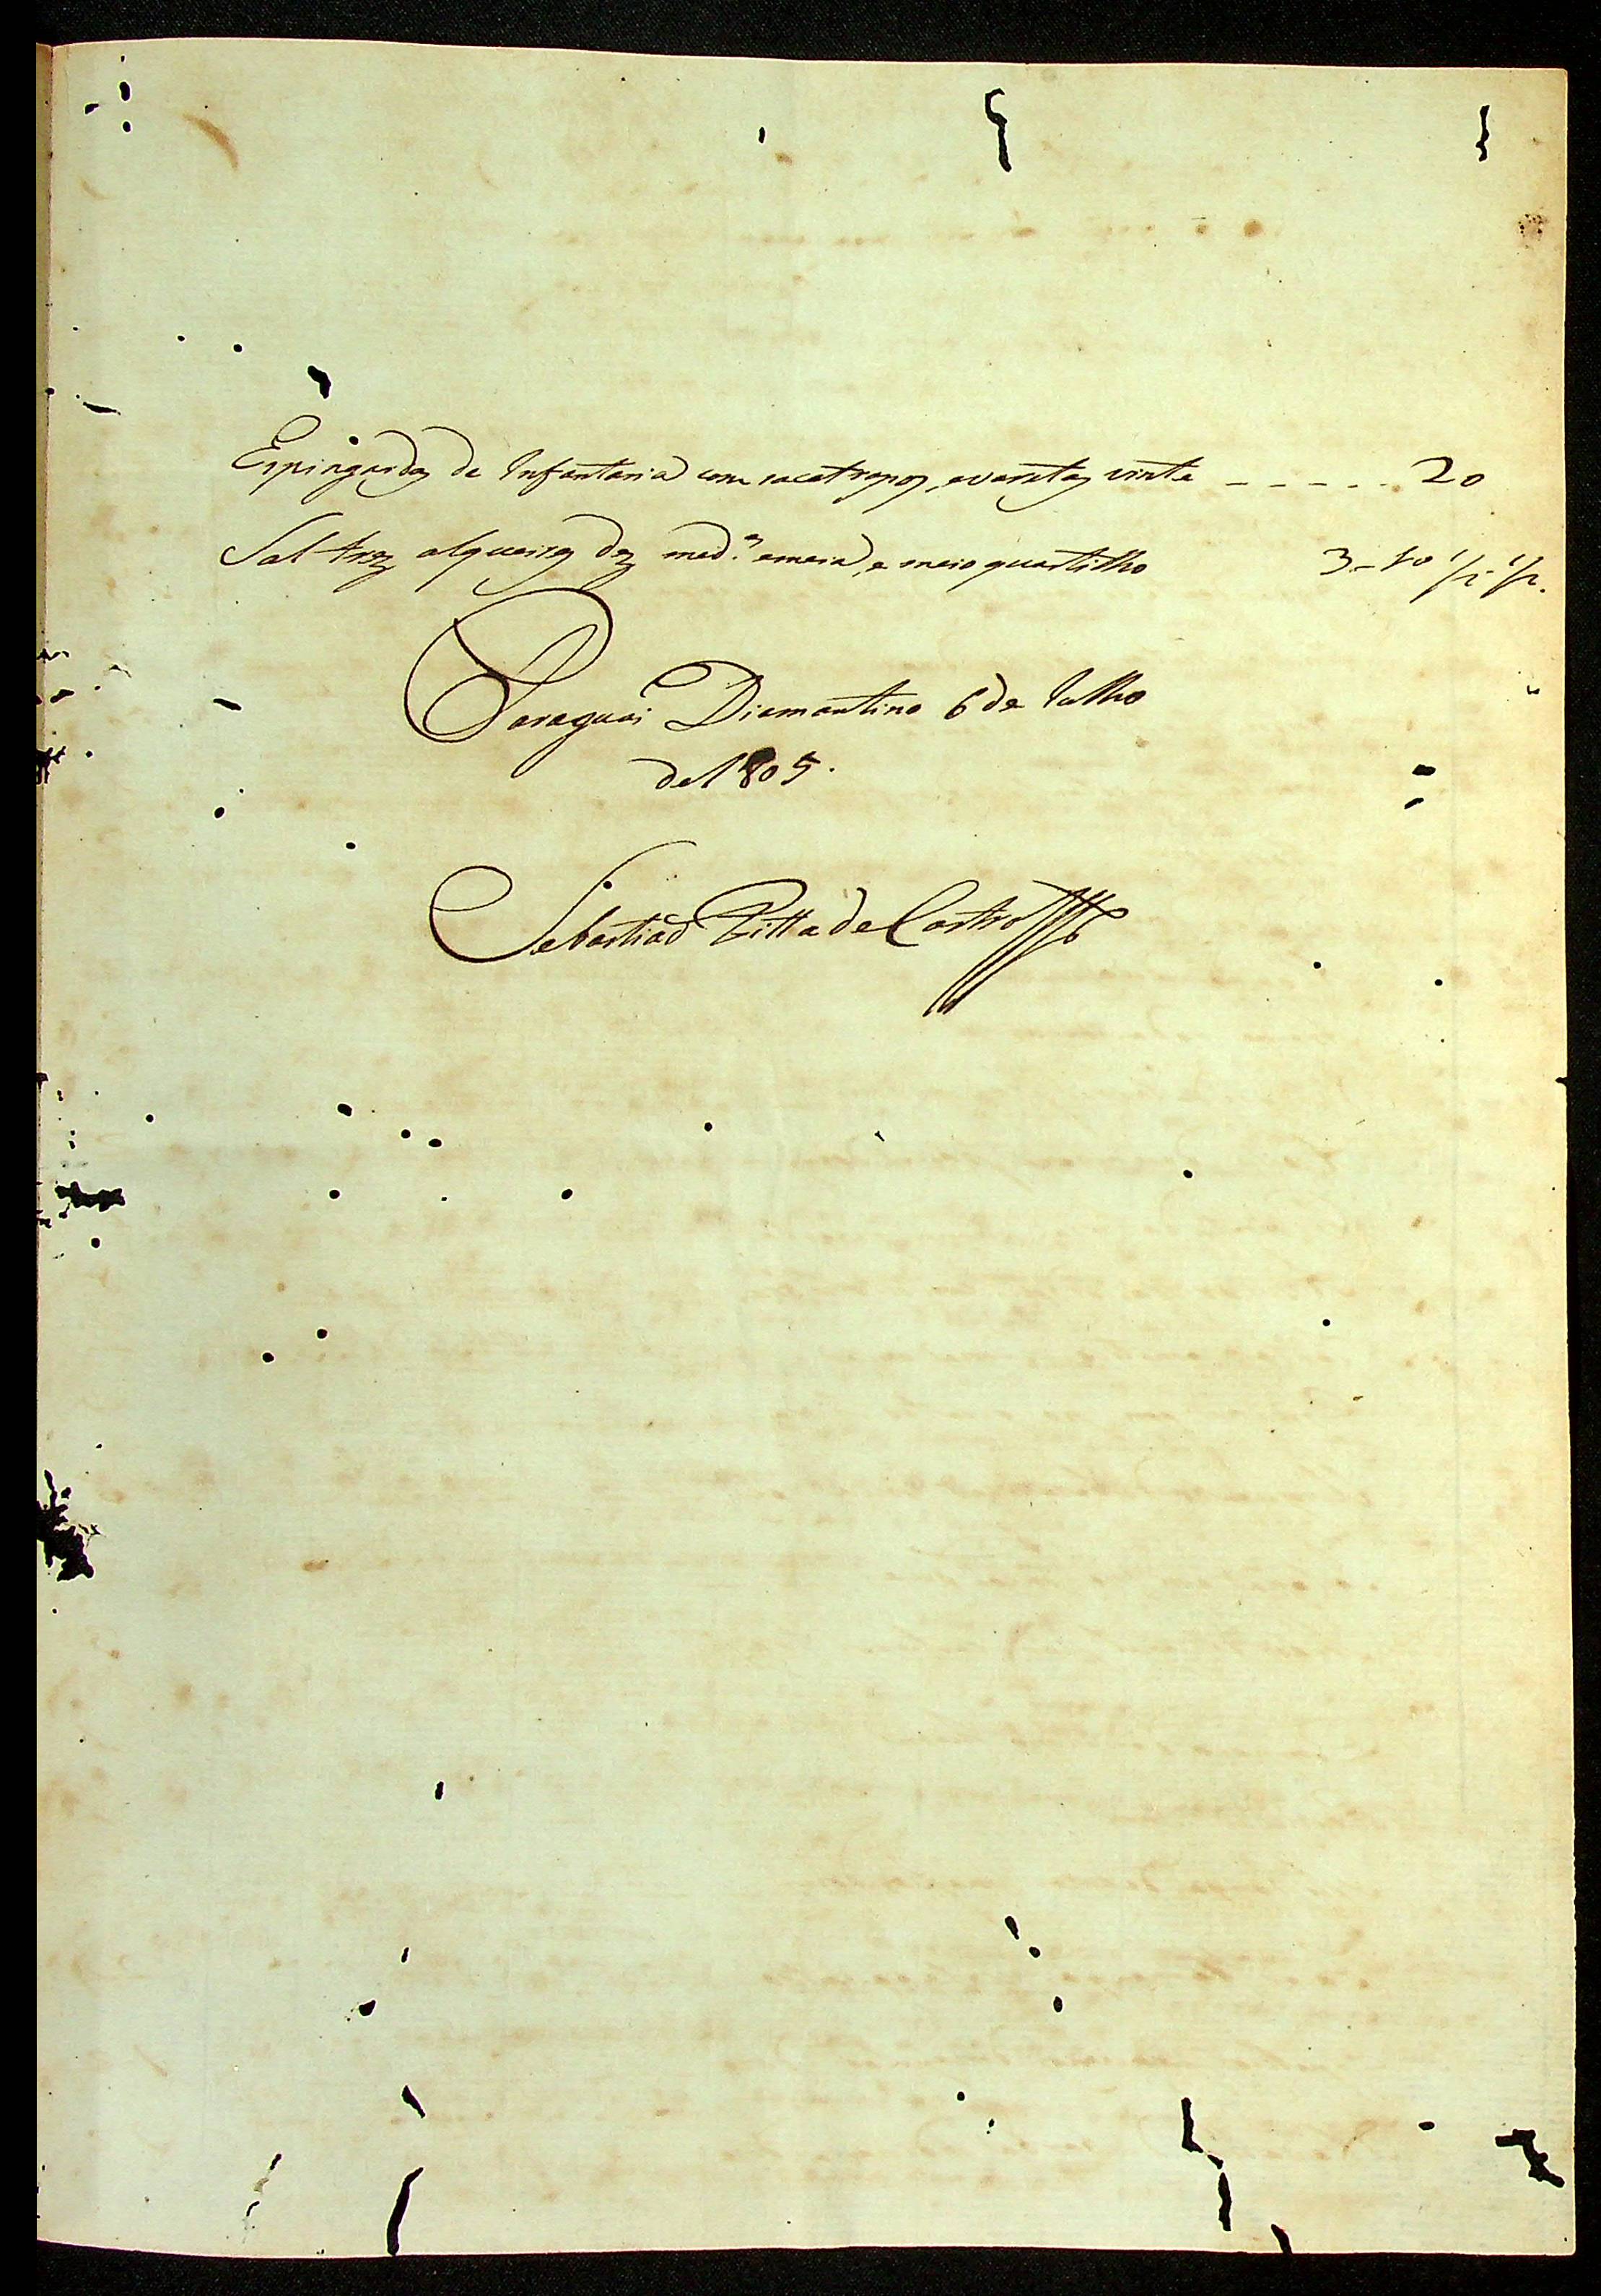 Espingardas de Infantaria com sacatrapos, evaretas vinte - - - - - 20
Sal trez alqueires dez med.ˢ emeia, e meio quartilho 3-10 1/2 1/2.
Paraguai Diamantino 6 de Julho
de 1805.
Sebastião Pitta de Castro